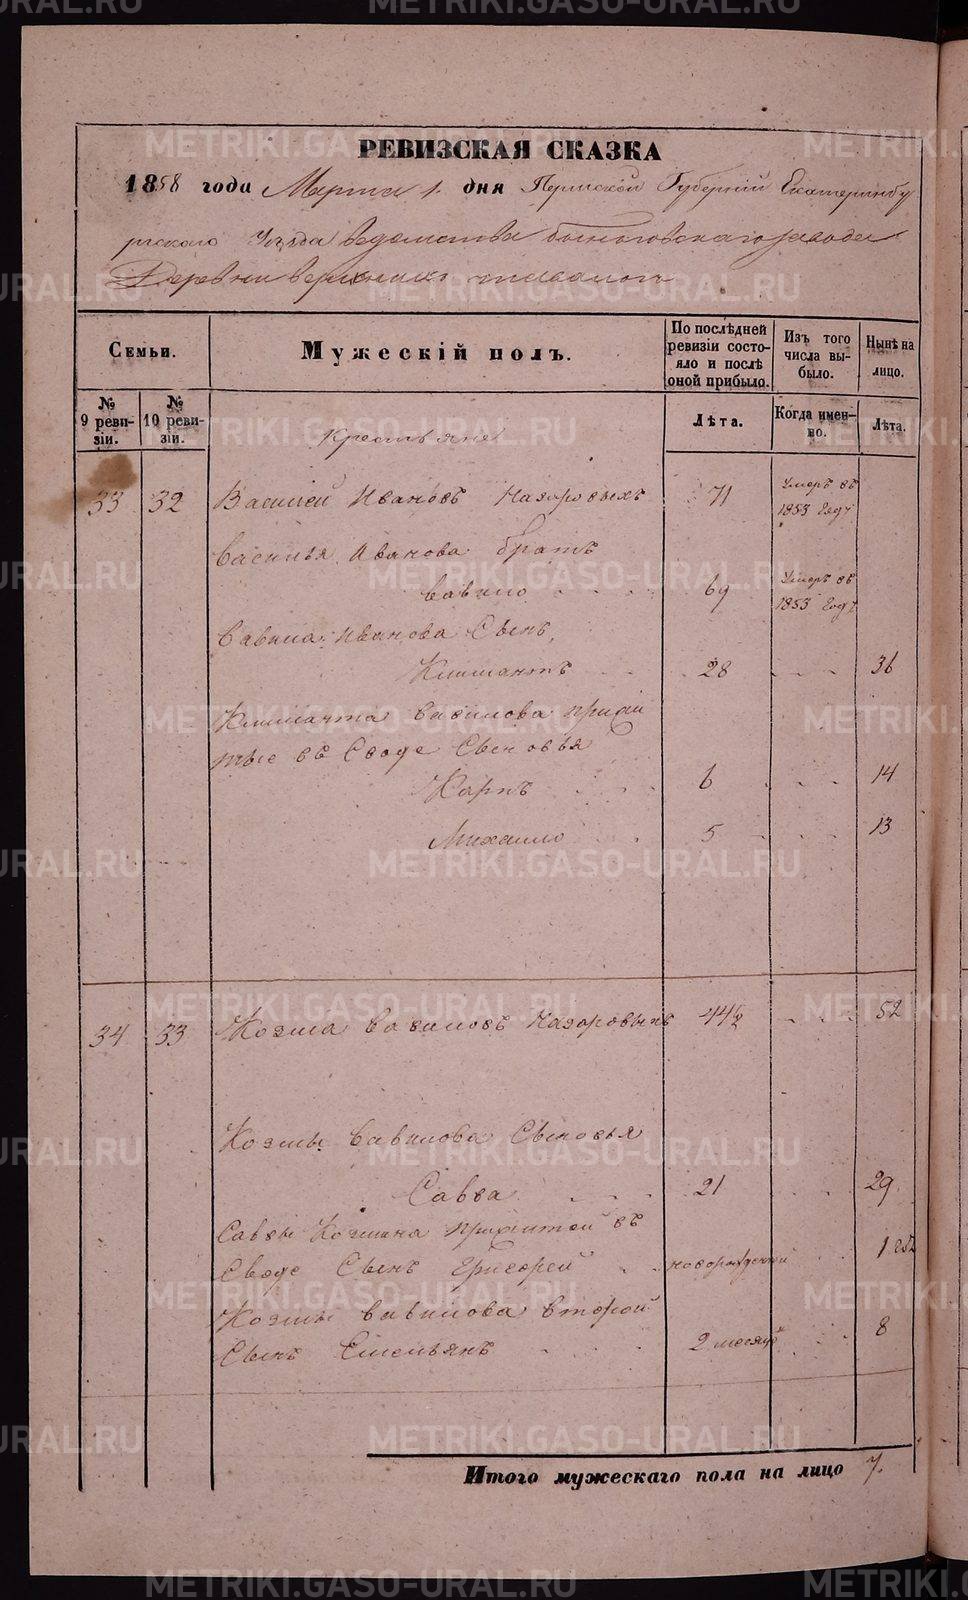 РЕВИЗСКАЯ СКАЗКА
1858 года Марта 1 дня Пермской Губернии Екатеринбу
ргского Уезда ведомства заводa
Деревни верхнихъ
Семьи.
Мужескій полъ.
По послѣдней ревизіи состояло и послѣ оной прибыло.
Изъ того числа выбыло.
Нынѣ на лицо.
№ 9 ревизіи.
№ 10 ревизіи.
Лѣта.
Когда именно.
Лѣта.
Крестьяне
33 32 Василей Ивановъ Назаровыхъ 71 Умеръ въ 1853 Году
Василья Иванова братъ
Вавило 69 Умеръ въ 1853 Году
Вавила Иванова Сынъ,
Климантъ 28 36
Климанта Вавилова прижи
тые въ Сводe Сыновья
Карпъ 6 14
Михаило 5 13
34 33 Козма Вавиловъ Назаровыхъ 44½ 52
Козмы Вавилова Сыновья
Савва 21 29
Саввы Козмина Прижитой въ
Сводe Сынъ Григорей новорожденной 1
Козмы Вавилова второй
Сынъ Емельянъ 2 месяцъ 8
Итого мужескаго пола на лицо 7.
METRIKI.GASO-URAL.RU